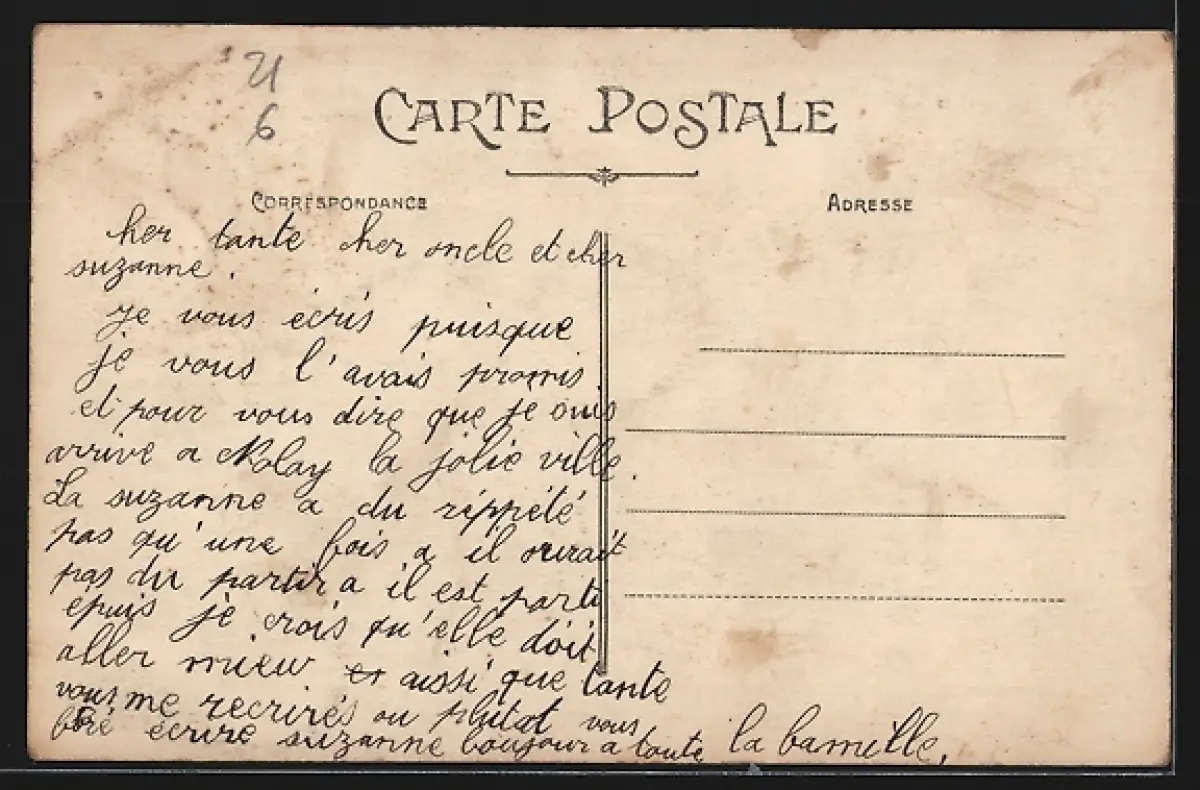 21
6
CARTE POSTALE
CORRESPONDANCE
ADRESSE
cher tante cher oncle et cher
suzanne.
je vous écris puisque
je vous l'avais promis
et pour vous dire que je suis
arrivé a Nolay la jolie ville.
La suzanne a du rèppété
pas qu'une fois a il ourait
pas du partir a il est parti
épuis je crois qu'elle doit
aller mieu et aissi que tante
vous me recrirés ou plutot vous
feré écrire suzanne bonjour a toute la famille.